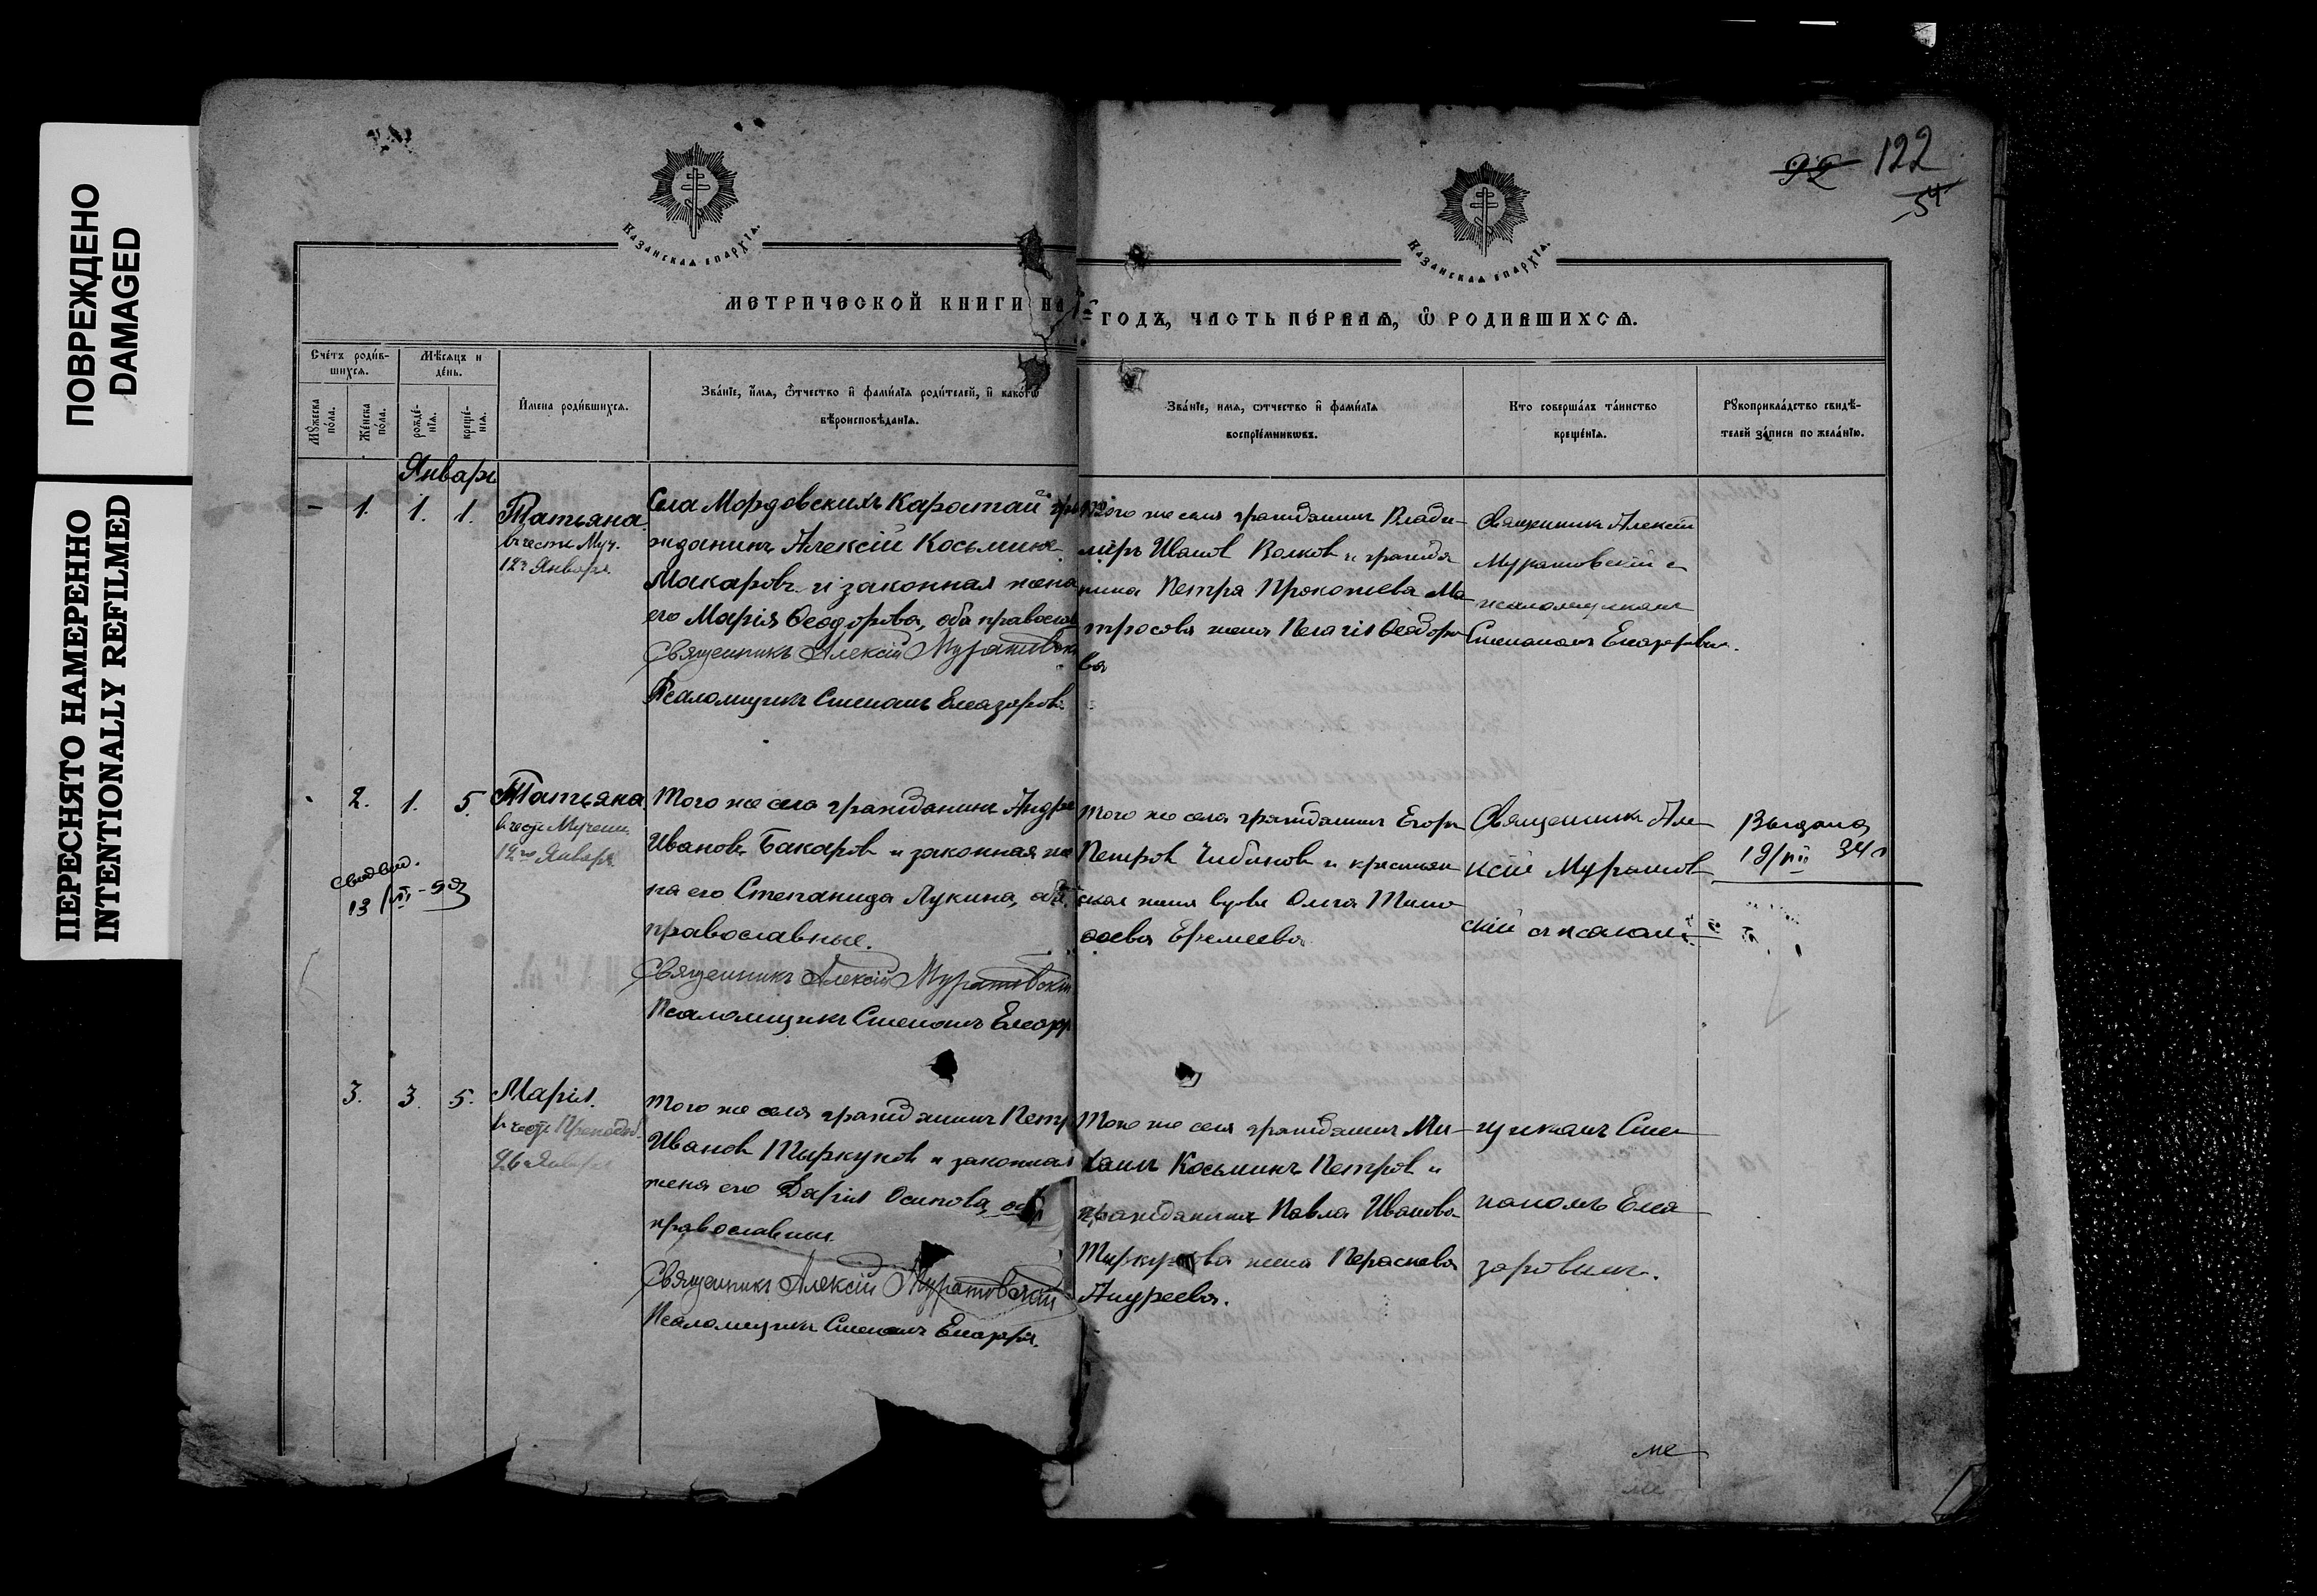 ПОВРЕЖДЕНО
DAMAGED
ПЕРЕСНЯТО НАМЕРЕННО
INTENTIONALLY REFILMED
92 122
54
Казанская епархія.
Казанская епархія.
МЕТРИЧЕСКОЙ КНИГИ НА
ГОДЪ, ЧАСТЬ ПЕ́РВАЯ, Ѡ РОДИВШИХСЯ.
Сче́тъ роди́в-
шихся.
Мѣ́сяцъ и
де́нь.
Мꙋ́жеска
по́ла.
Же́нска
по́ла.
рожде́-
нїя.
креще́-
нїя.
И҆мена роди́вшихся.
Зва́нїе, и҆́мя, ѻ҆́тчество и҆ фами́лїя роди́телей, и҆ како́гѡ
вѣроисповѣ́данїя.
Зва́нїе, имя, ѻтчество и҆ фами́лїя
воспрїе́мникѡвъ.
Кто соверша́лъ та́инство
креще́нїя.
Рꙋкоприкла́дство свидѣ́-
телей за́писи по жела́нїю.
Январь
- 1. 1. 1.
Татьяна
в честь Муч.
12го Января.
Села Мордовскихъ Каратай гра
жданинъ Алексій Косьминъ
Макаровъ и законная жена
его Марія Ѳеодорова, оба православ
Священникъ Алексій Муратовск
Псаломщикъ Степанъ Елеазаровъ.
Того же села гражданинъ Влади-
міръ Иванов Волков и гражда
нина Петра Прокопьева Ма-
тросова жена Пелагія Ѳеодоро-
ва
Священникъ Алексій
Муратовскій с
псаломщикомъ
Степаномъ Елеазаровым.
2. 1. 5.
Татьяна
в честь Мучени.
12го Января
13/VI-
Того же села гражданинъ Андре
Иванов Бакаров и законная же
на его Степанида Лукина, оба
православные.
Священникъ Алексій Муратовскій
Псаломщикъ Степанъ Елеазар
Того же села гражданинъ Егоръ
Петров Чибиков и крестьян
ская вдова Ольга Тимо
ѳеева Еремеева
Священникъ Але-
ксій Муратов
скій съ псалом-
Выдана
19/VII 34г
3. 3. 5.
Марія.
в честь Преподоб.
26 Января
Того же села гражданинъ Петр
Иванов Тыркунов и законная
жена его Дарія Осипова, оба
православные.
Священникъ Алексій Муратовскій
Псаломщикъ Степанъ Елеазаров.
Того же села гражданинъ Ми-
хаилъ Косьминъ Петров и
гражданина Павла Иванова
жена Параскева
Андреева.
щикомъ Сте-
паномъ Елеа-
заровымъ.